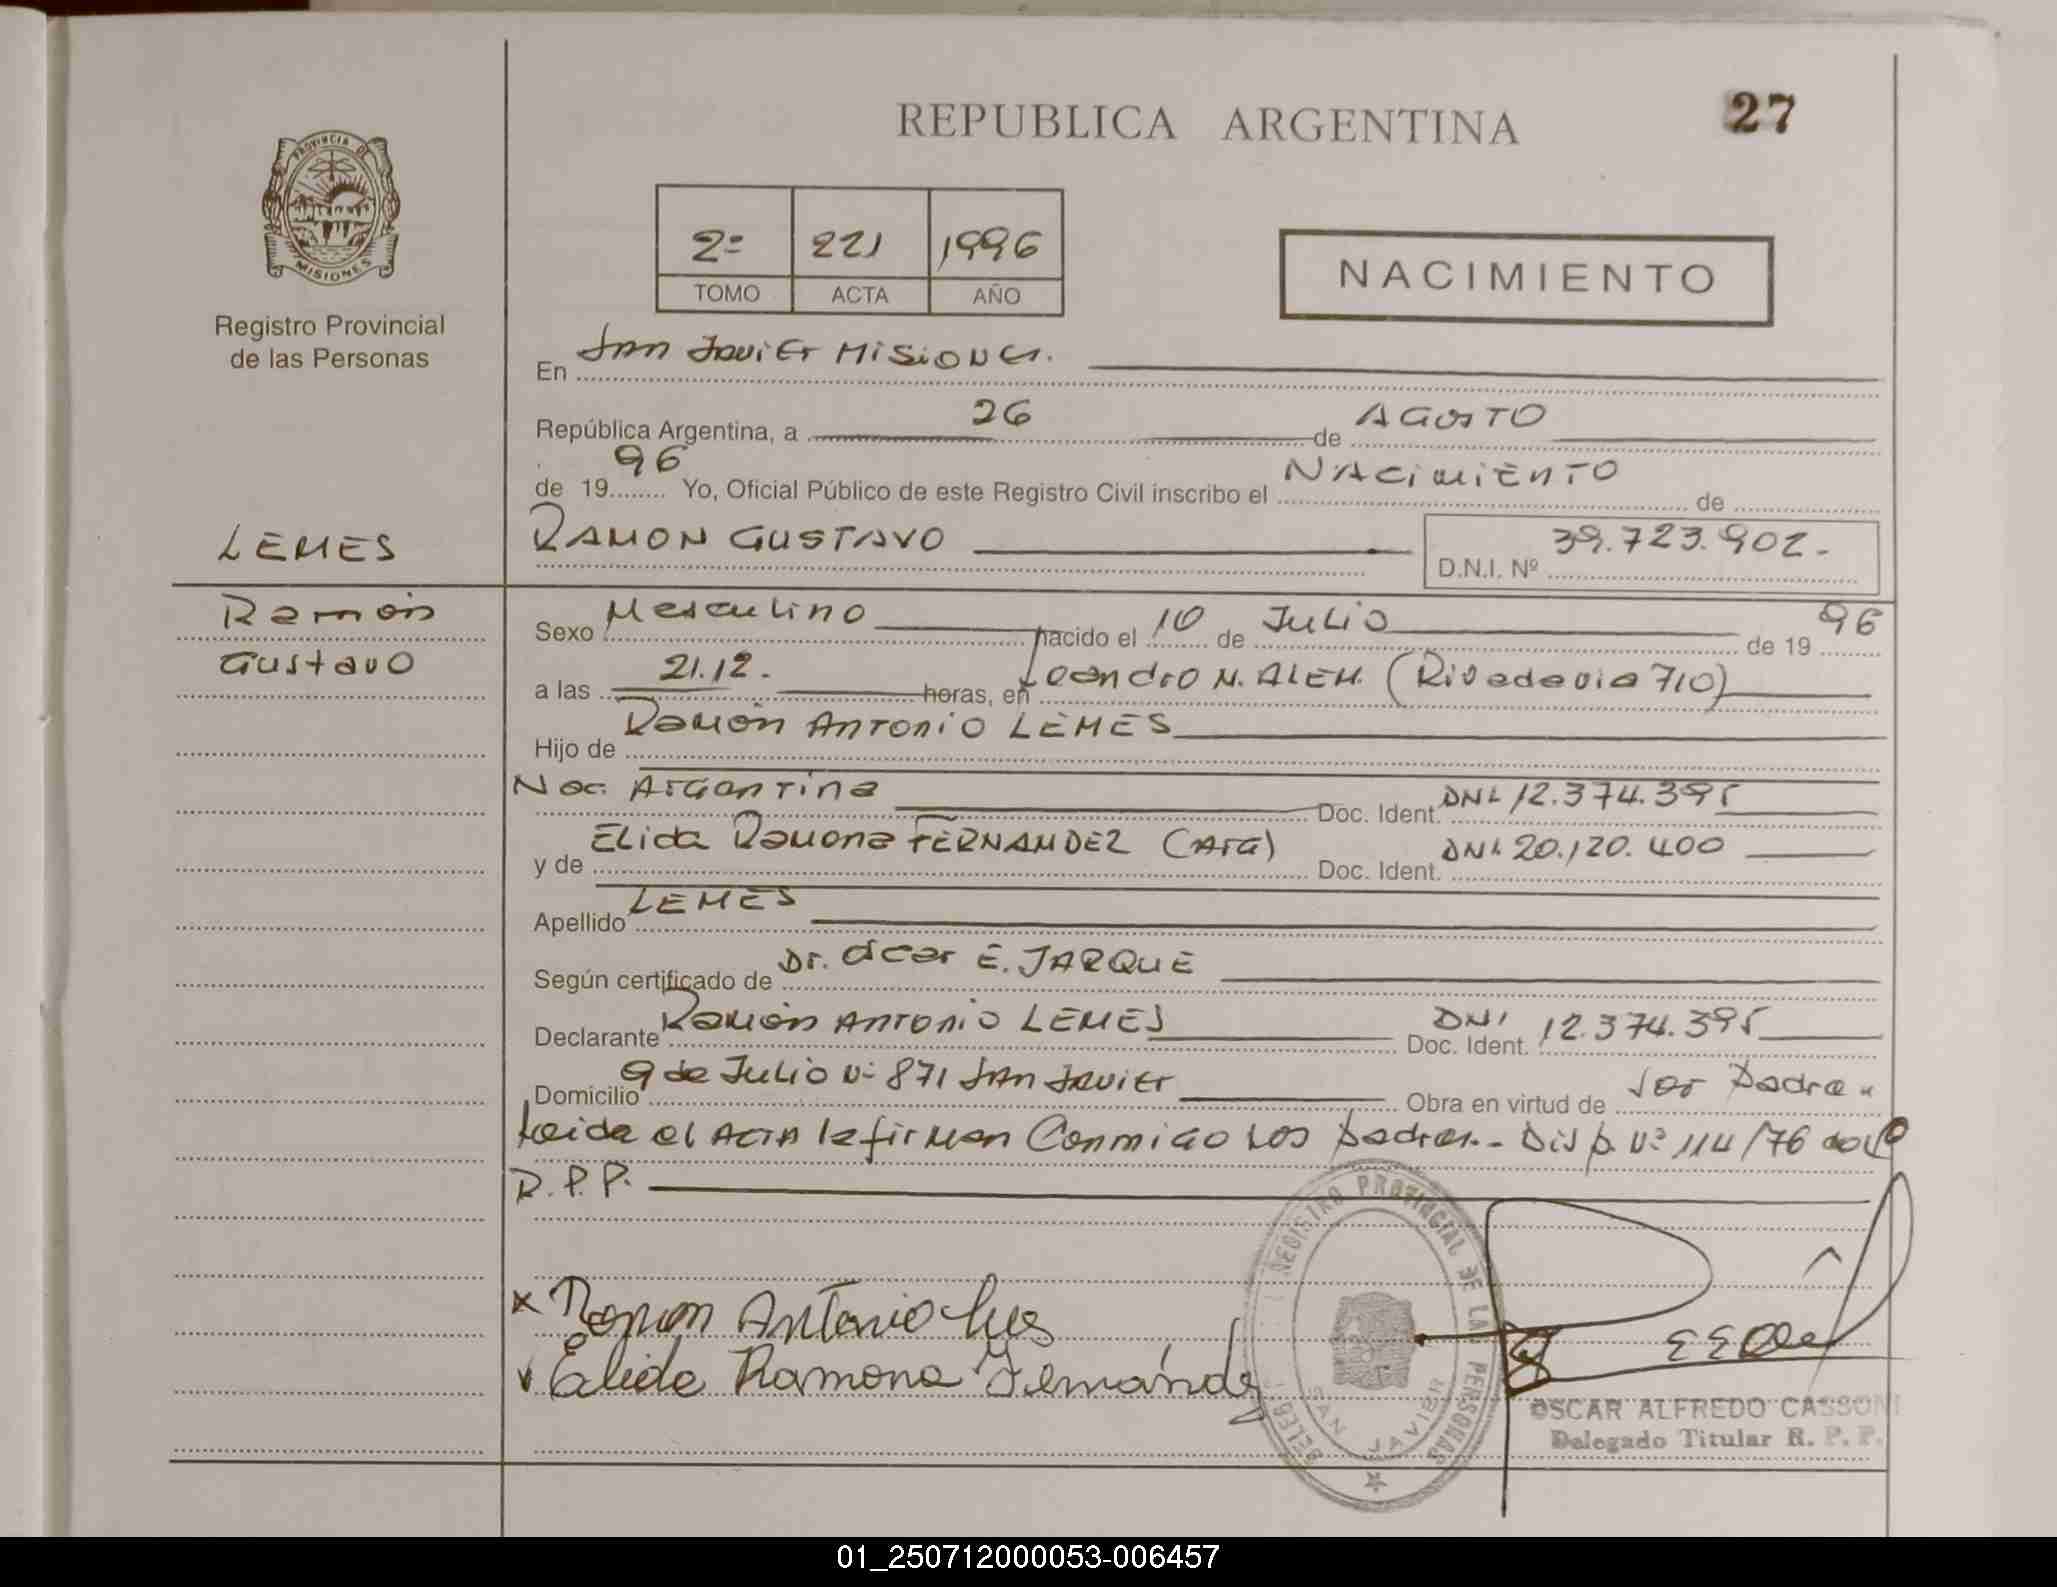 REPUBLICA ARGENTINA
27
PROVINCIA DE
MISIONES
Registro Provincial
de las Personas
2º 221 1996
TOMO ACTA AÑO
NACIMIENTO
En San Javier Misiones.
República Argentina, a 26 de AGOSTO
de 1996 Yo, Oficial Público de este Registro Civil inscribo el NACIMIENTO de
RAMON GUSTAVO D.N.I. Nº 39.723.902.-
LEMES
Ramón
Gustavo
Sexo Masculino nacido el 10 de Julio de 1996
a las 21.12. horas, en Leandro N. ALEM. (Rivadavia 710)
Hijo de Ramón Antonio LEMES
Nac. Argentina Doc. Ident. DNI 12.374.395
y de Elida Ramona FERNANDEZ (Arg) Doc. Ident. DNI 20.120.400
Apellido LEMES
Según certificado de Dr. Oscar E. JARQUE
Declarante Ramón Antonio LEMES Doc. Ident. DNI 12.374.395
Domicilio 9 de Julio Nº 871 San Javier Obra en virtud de ser Padre.
Leida el ACTA la firman Conmigo los padres.- Disp. Nº 114/76 de la
R.P.P.
x Ramon Antonio
Elida Ramona Fernández
REGISTRO PROVINCIAL DE LAS PERSONAS
SAN JAVIER
OSCAR ALFREDO CASSONI
Delegado Titular R. P. P.
01_250712000053-006457